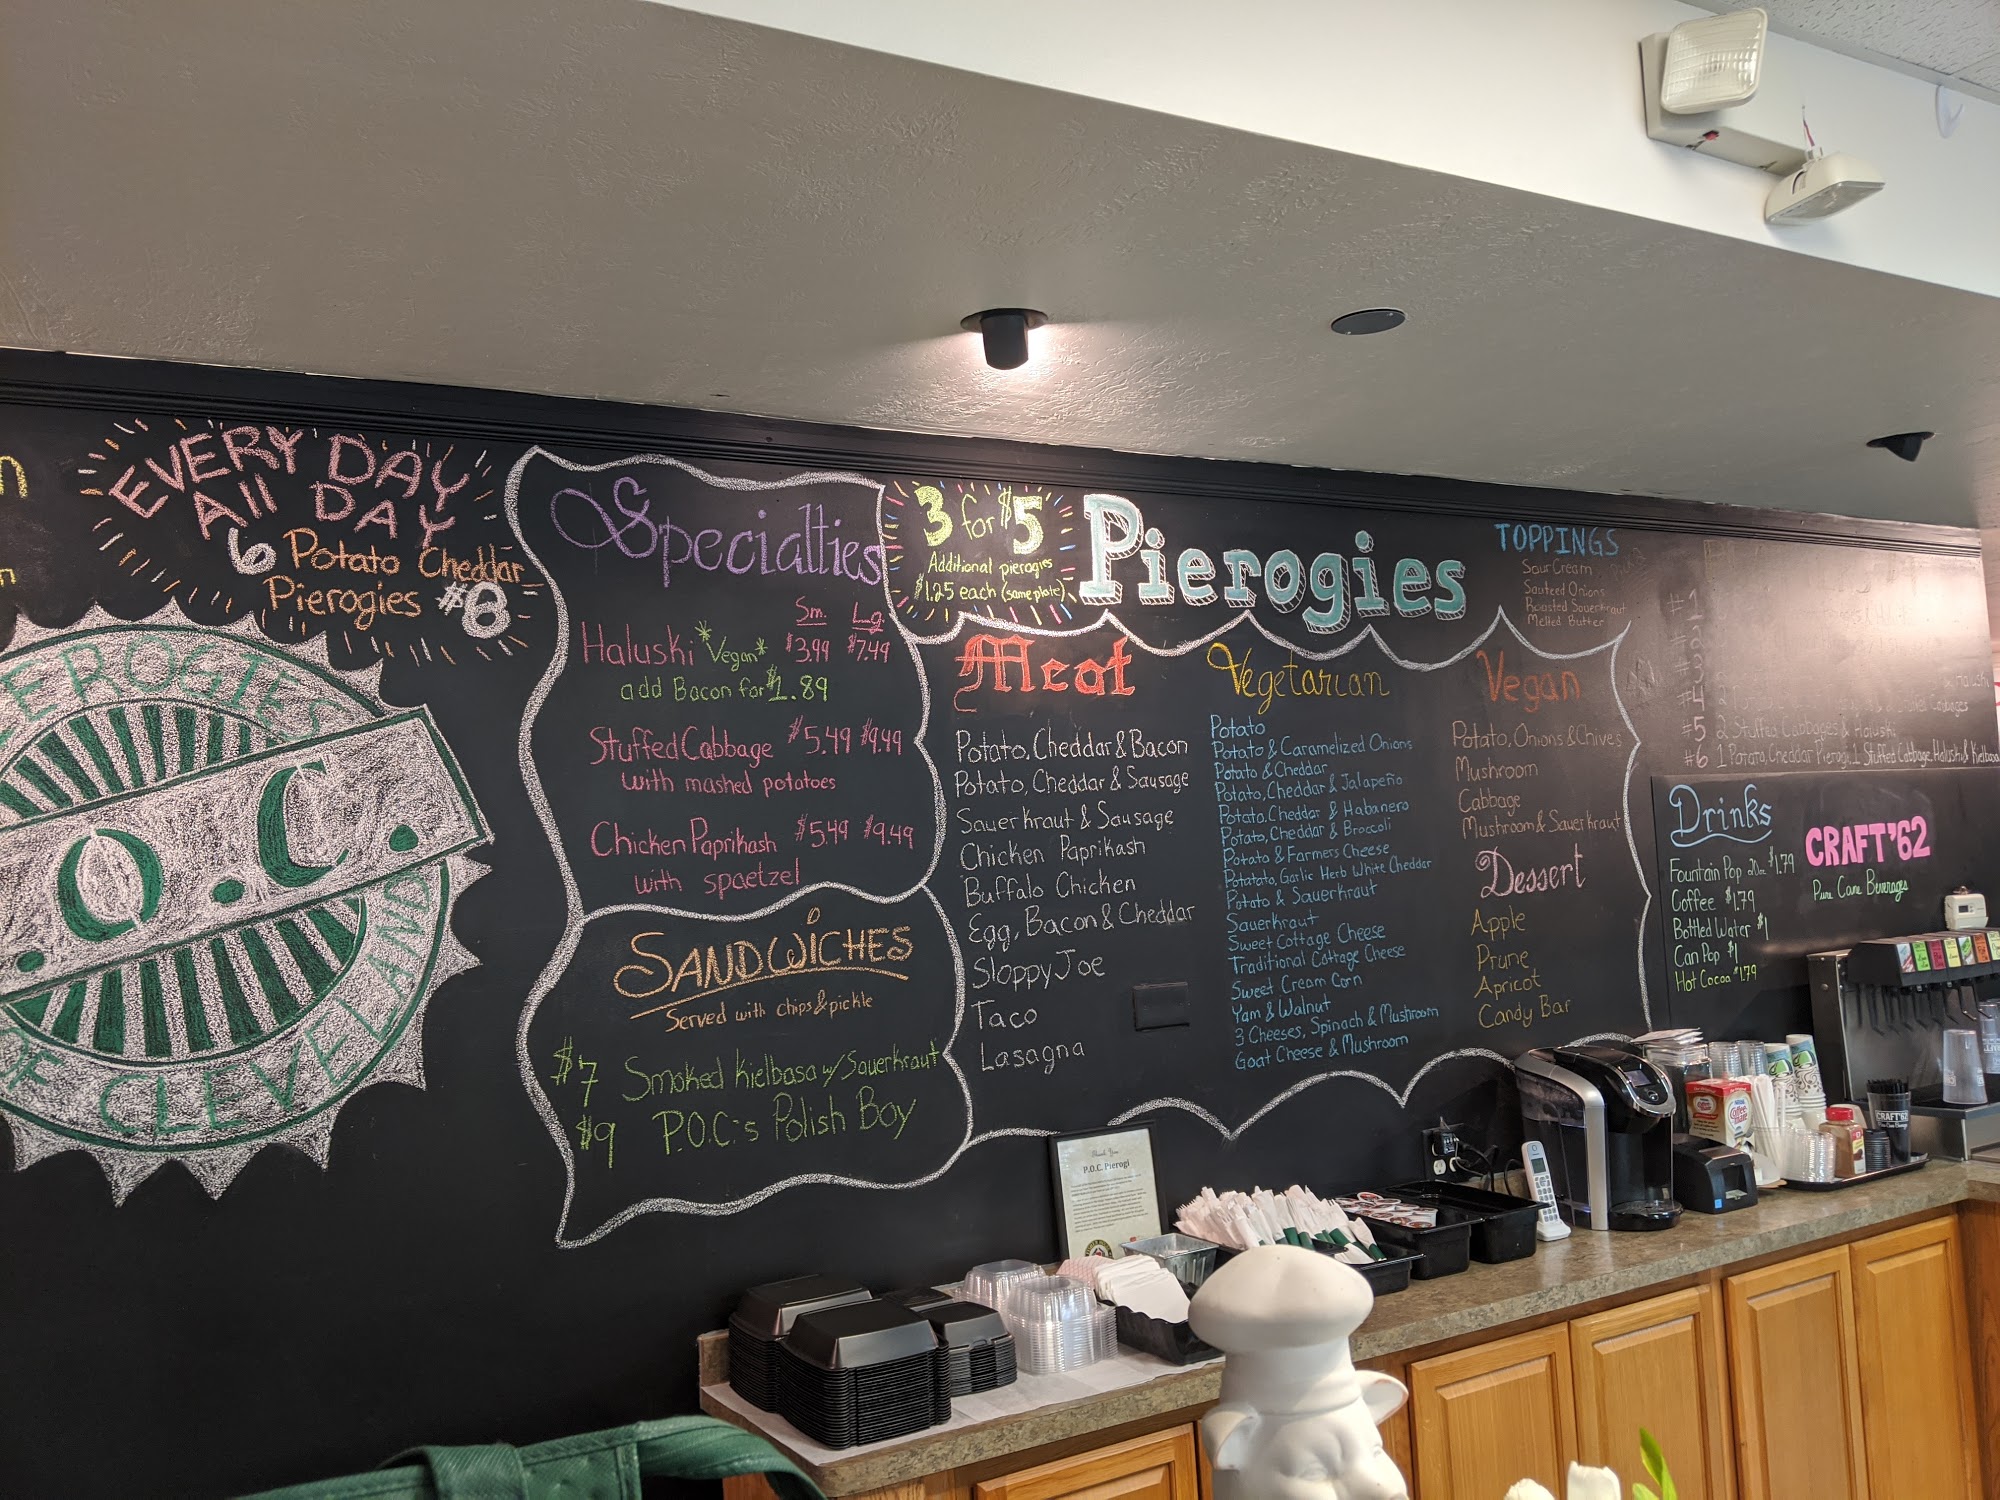 EVERY DAY
All DAY
6 Potato Cheddar
Pierogies $8
PIEROGIES
P.O.C.
OF CLEVELAND
Specialties
Sm. Lg.
Haluski *Vegan* $3.99 $7.49
add Bacon for $1.89
Stuffed Cabbage $5.49 $9.49
with mashed potatoes
Chicken Paprikash $5.49 $9.49
with spaetzel
SANDWICHES
Served with chips & pickle
$7 Smoked Kielbasa w/ Sauerkraut
$9 P.O.C.'s Polish Boy
3 for $5
Additional pierogies
$1.25 each (same plate)
Pierogies
Meat
Potato, Cheddar & Bacon
Potato, Cheddar & Sausage
Sauerkraut & Sausage
Chicken Paprikash
Buffalo Chicken
Egg, Bacon & Cheddar
Sloppy Joe
Taco
Lasagna
Vegetarian
Potato
Potato & Caramelized Onions
Potato & Cheddar
Potato, Cheddar & Jalapeño
Potato, Cheddar & Habanero
Potato, Cheddar & Broccoli
Potato & Farmers Cheese
Potatato, Garlic Herb White Cheddar
Potato & Sauerkraut
Sauerkraut
Sweet Cottage Cheese
Traditional Cottage Cheese
Sweet Cream Corn
Yam & Walnut
3 Cheeses, Spinach & Mushroom
Goat Cheese & Mushroom
TOPPINGS
Sour Cream
Sauteed Onions
Roasted Sauerkraut
Melted Butter
Vegan
Potato, Onions & Chives
Mushroom
Cabbage
Mushroom & Sauerkraut
Dessert
Apple
Prune
Apricot
Candy Bar
#1
#4
#5 2 Stuffed Cabbages & Haluski
#6 1 Potato, Cheddar Pierogi, 1 Stuffed Cabbage, Haluski & Kielbasa
Drinks
Fountain Pop 20oz $1.79
Coffee $1.79
Bottled Water $1
Can Pop $1
Hot Cocoa $1.79
CRAFT '62
Pure Cane Beverages
Thank You
P.O.C. Pierogi
CRAFT'62